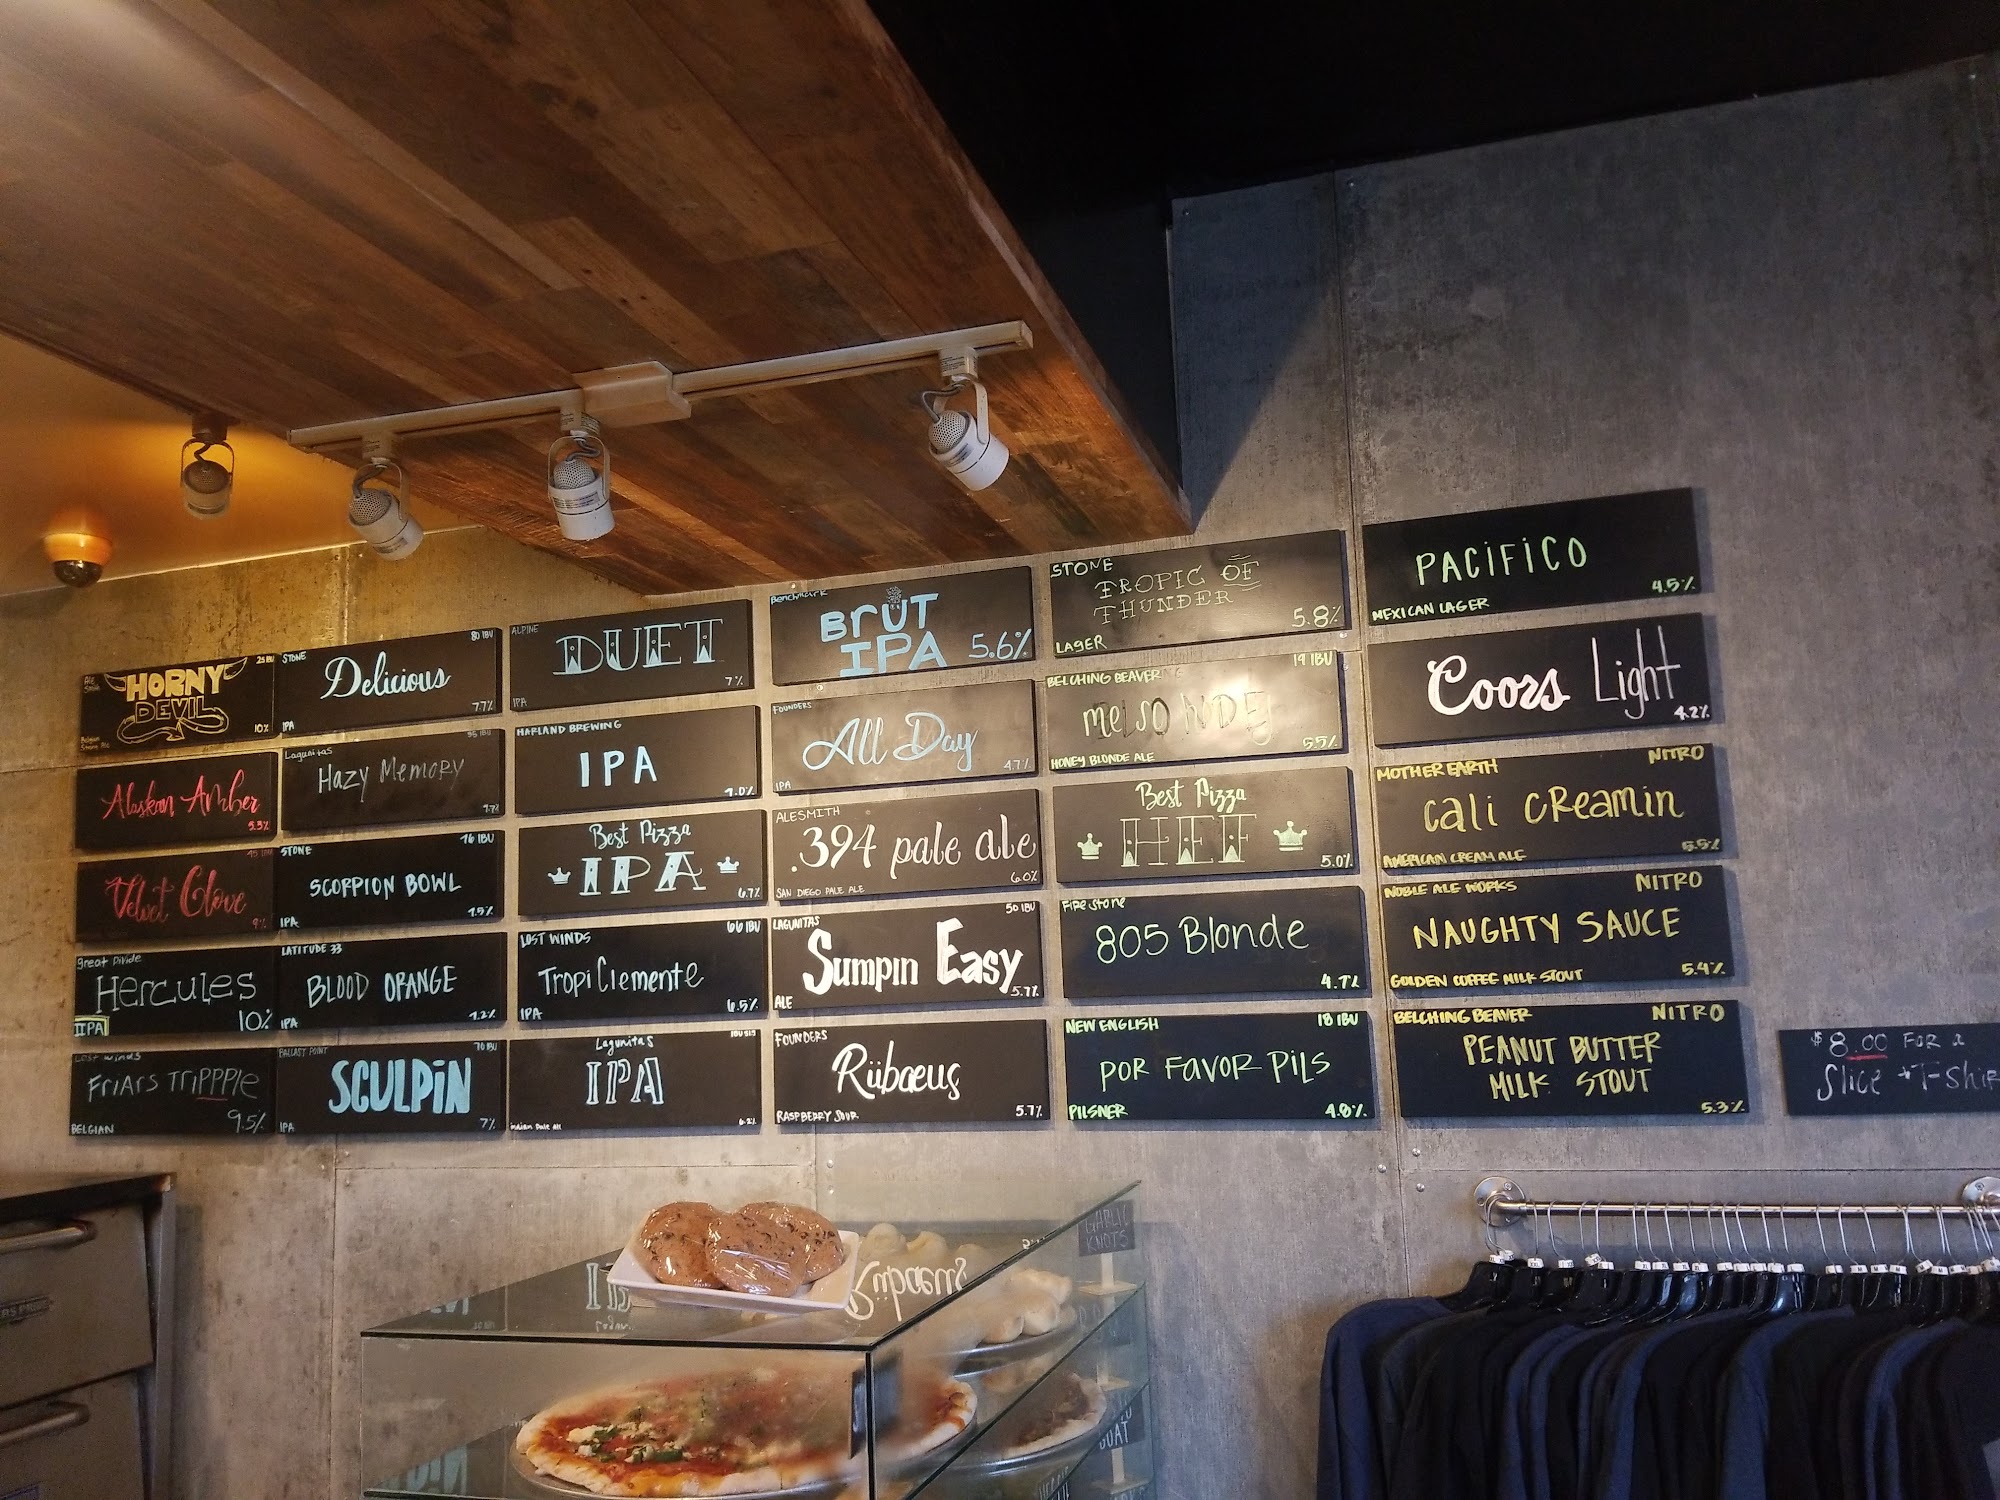 Ale Smith
25 IBU
HORNY
DEVIL
Belgian Strong Ale
10%
Alaskan Amber
5.3%
45 IBU
Velvet Glove
9%
great Divide
Hercules
IIPA
10%
Lost winds
Friars Trippple
BELGIAN
9.5%
STONE
80 IBU
Delicious
IPA
7.7%
Lagunitas
Hazy Memory
7.7%
STONE
76 IBU
SCORPION BOWL
IPA
7.5%
LATITUDE 33
BLOOD ORANGE
IPA
7.2%
BALLAST POINT
70 IBU
SCULPiN
IPA
7%
ALPINE
DUET
IPA
7%
HARLAND BREWING
IPA
7.0%
Best Pizza
IPA
6.7%
LOST WINDS
66 IBU
Tropi Clemente
IPA
6.5%
Lagunitas
IPA
6.2%
Benchmark
BRÜT
IPA 5.6%
FOUNDERS
All Day
IPA
4.7%
ALESMITH
.394 pale ale
SAN DIEGO PALE ALE
6.0%
LAGUNITAS
50 IBU
Sumpin Easy
ALE
5.7%
FOUNDERS
Rübaeus
RASPBERRY SOUR
5.7%
STONE
TROPIC OF
THUNDER
LAGER
5.8%
BELCHING BEAVER
14 IBU
HONEY BLONDE ALE
5.5%
Best Pizza
HEF
5.0%
Firestone
805 Blonde
4.7%
NEW ENGLISH
18 IBU
POR FAVOR PILS
PILSNER
4.8%
PACiFiCO
MEXICAN LAGER
4.5%
Coors Light
4.2%
MOTHER EARTH
NITRO
Cali CReamin
AMERICAN CREAM ALE
5.5%
NOBLE ALE WORKS
NITRO
NAUGHTY SAUCE
GOLDEN COFFEE MILK STOUT
5.4%
BELCHING BEAVER
NITRO
PEANUT BUTTER
MILK STOUT
5.3%
$8.00 FOR a
Slice + T-Shir
GARLIC
KNOTS
GOAT